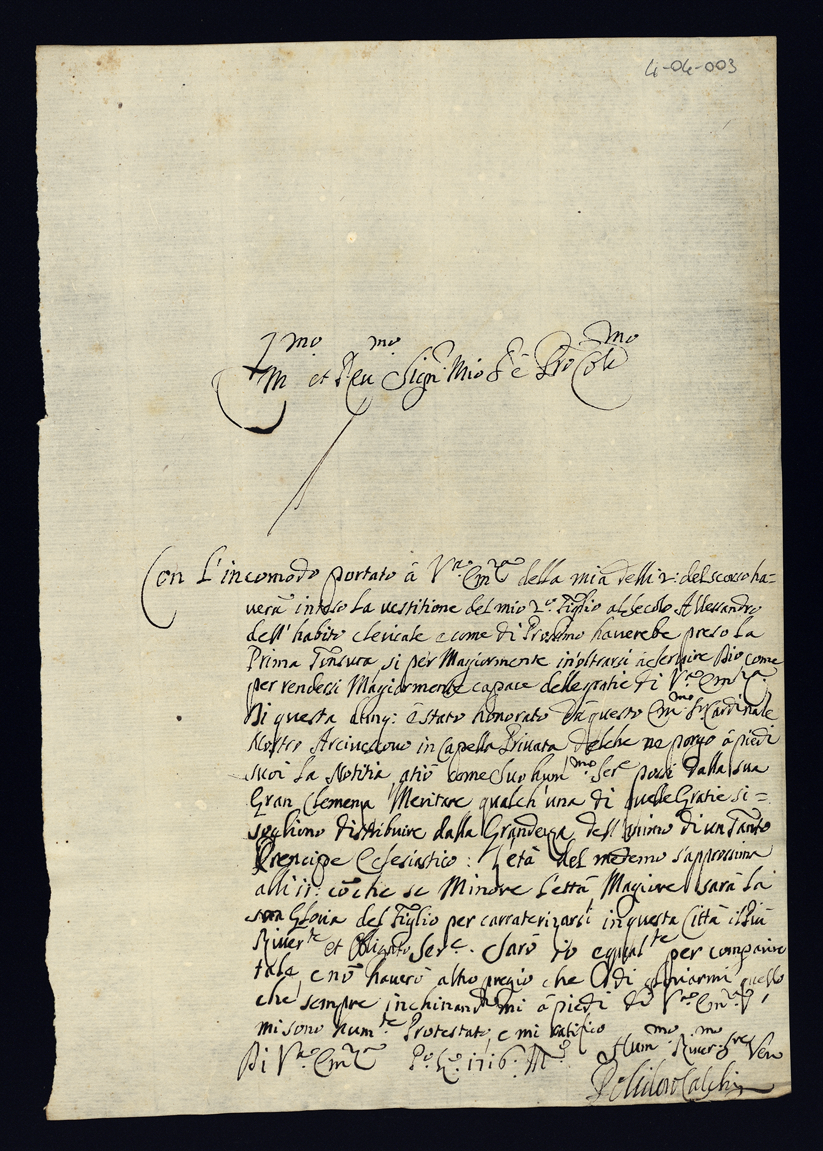 4-04-003
Em.mo et Reu.mo Sign.r Mio Pro Col.mo
Con L'incomodo portato à V.ra Em.za della mia delli 2: del scorso ha=
uerà inteso la uestitione del mio 2.o Figlio al secolo Allessandro
dell'habito clericale e come di Prossimo hauerebe preso La
Prima Tonsura, si per Magiormente inoltrarsi à seruire Dio come
per rendersi Magiormente capace delle gratie di V.ra Em.za
Di questa è stato honorato dà questo Em.mo S.r Cardinale
Nostro Arciuescouo in Capella Priuata del che ne porgo à piedi
suoi La Notitia atiò come Suo hum.mo Ser.e possi dalla sua
Gran Clemenza Meritare qualch'una di quelle Gratie si=
sogliono distribuire dalla Grandezza dell'Animo di un Tanto
Prencipe Eclesiastico: L'età del medemo s'approssima
alli 11: che se Minore L'età Magiore sarà La
Gloria del Figlio per carraterizarsi in questa Città il Più
Riuer.te et Obligato Ser.e. Sarò io equal.te per comparire
tale, e nõ hauerò altro pregio che di gloriarmi quello
che sempre inchinand mi à piedi di V.ra Em.za
mi sono hum.te Protestato, e mi ratifico
Di V.ra Em.za 1716: Hum.mo Riuer.mo Ser.re Vero
Polidoro Calchi